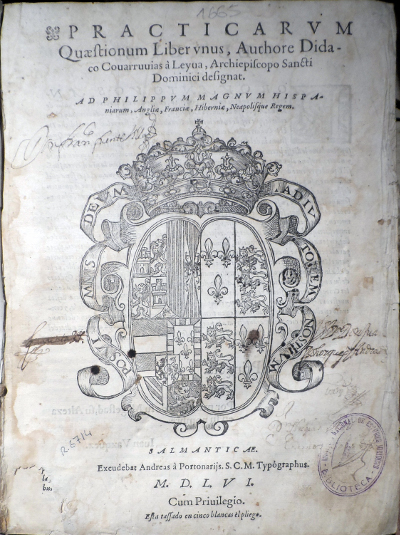 1665
PRACTICARVM
Quæstionum Liber vnus, Authore Dida-
co Couarruuias à Leyua, Archiepiscopo Sancti
Dominici designat.
AD PHILIPPVM MAGNVM HISPA-
niarum, Angliæ, Franciæ, Hiberniæ, Neapolisque Regem.
POSVI
MVS
DEVM
ADIV
TOREM
R-5714
SALMANTICAE.
Excudebat Andreas à Portonarijs. S. C. M. Typographus.
M. D. L V I.
Cum Privilegio.
Esta tassado en cinco blancas el pliego.
BIBLIOTECA